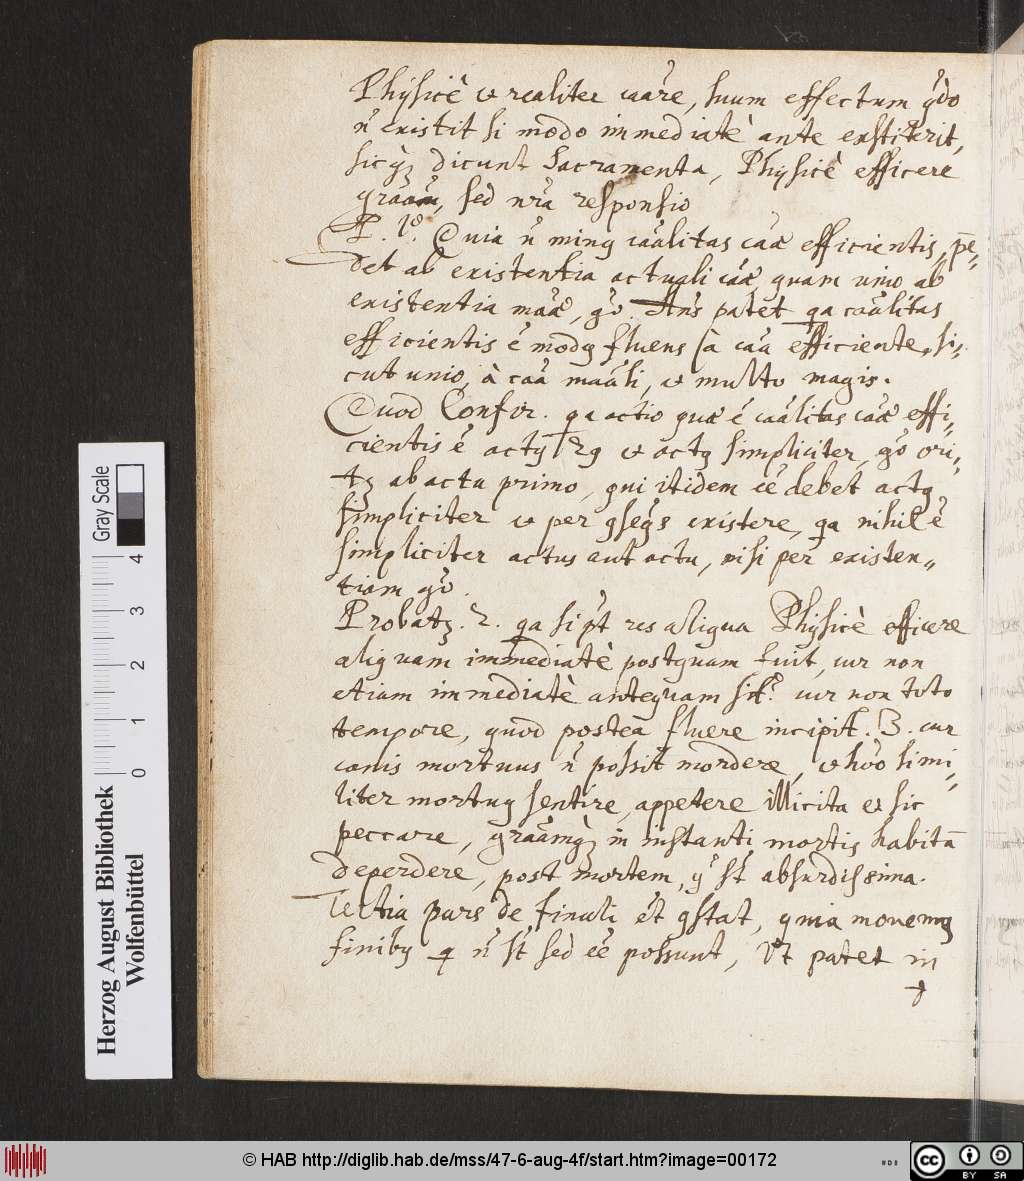 Physicè et realiter caāre, suum effectum qdo
n̄ existit si modo immediatè ante exstiterit,
sicq; dicunt Sacramenta, Physicè efficere
graām, sed nr̄a responsio
P. 1º. Quia n̄ minq caālitas caæ efficientis, pē-
det ab existentia actuali caæ quam unio ab
existentia maæ, gō. Ans patet qa caālitas
efficientis ē modq fluens à caā efficiente, si-
cut unio, à caā maāli, et multo magis.
Quod Confir. qa actio quæ ē caālitas caæ effi-
cientis ē actq 2q et actq simpliciter, gō ori-
tq ab actu primo, qui itidem eē debet actq
simpliciter et per qseqs existere, qa nihil ē
simpliciter actus aut actu, nisi per existen-
tiam gō.
Probatq. 2. qa si pt res aliqua Physicè efficere
aliquam immediatè postquam fuit, cur non
etiam immediatè antequam sit? cur non toto
tempore, quod posteà fluere incipit. 3. cur
canis mortuus n̄ possit mordere, et hōo simi-
liter mortuq sentire, appetere illicita et sic
peccare, graāmq; in instanti mortis habitā
deperdere, post mortem, q̄ st absurdissima.
Tertia pars de finali ēt qstat, quia movemq
finibq q n̄ st sed eē possunt, Ut patet in
Herzog August Bibliothek
Wolfenbüttel
Gray Scale
0 1 2 3 4
© HAB http://diglib.hab.de/mss/47-6-aug-4f/start.htm?image=00172
cc BY SA